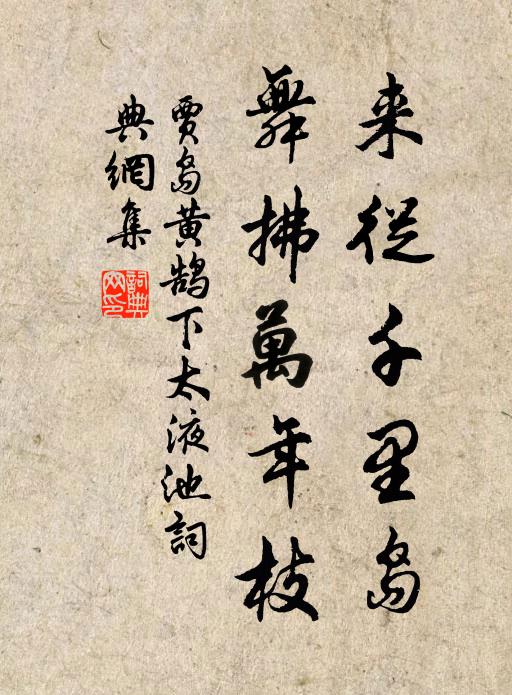 来從千里島
舞拂萬年枝
賈島黄鵠下太液池詞
典網集
詞典網印